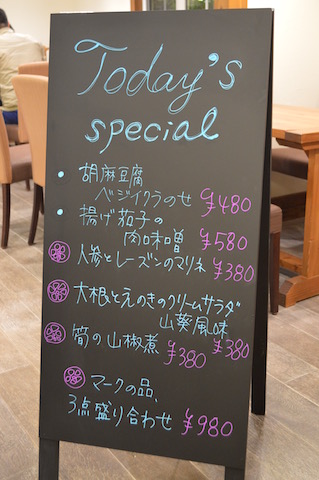 Today's
special
• 胡麻豆腐
ベジイクラのせ ¥480
• 揚げ茄子の
肉味噌 ¥580
人参とレーズンのマリネ ¥380
大根とえのきのクリームサラダ
山葵風味 ¥380
筍の山椒煮 ¥380
マークの品、
3点盛り合わせ ¥980